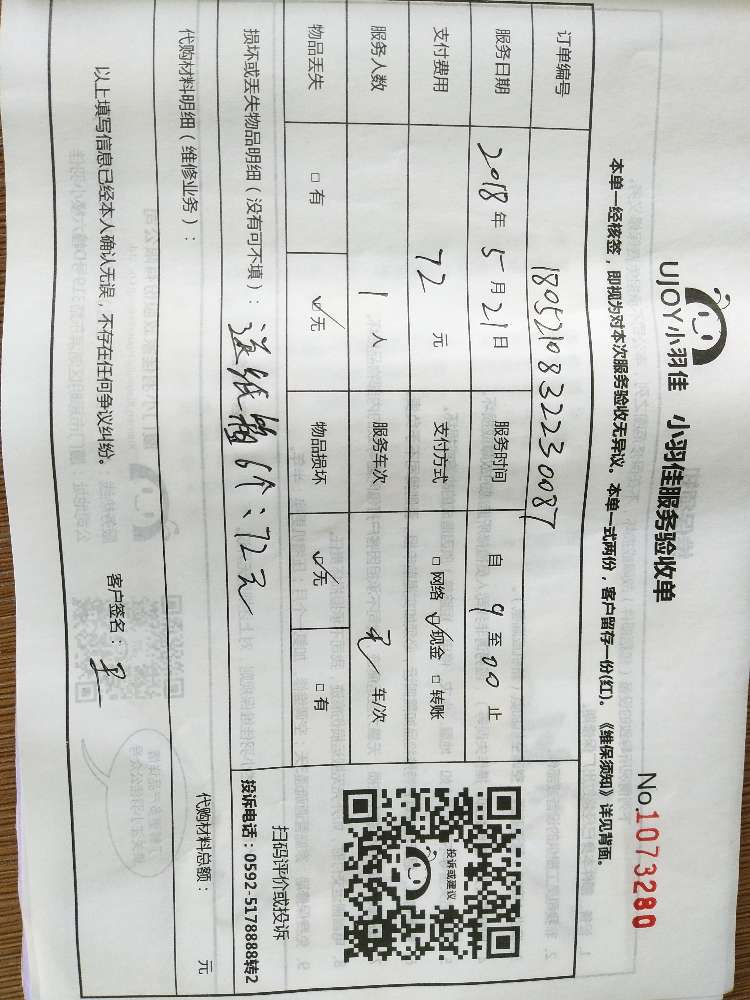 UJOY小羽佳 小羽佳服务验收单
No.1073280
本单一经核签，即视为对本次服务验收无异议。本单一式两份，客户留存一份(红)。《维保须知》详见背面。
订单编号 1805210832230087
服务日期 2018年5月21日 服务时间 自9至00止
支付费用 72元 支付方式 □网络 ☑现金 □转账
服务人数 1人 服务车次 车/次
物品丢失 □有 ☑无 物品损坏 ☑无 □有
投诉或建议
扫码评价或投诉
投诉电话：0592-5178888转2
损坏或丢失物品明细（没有可不填）：送纸箱6个：72元
代购材料明细（维修业务）： 代购材料总额： 元
以上填写信息已经本人确认无误，不存在任何争议纠纷。 客户签名：